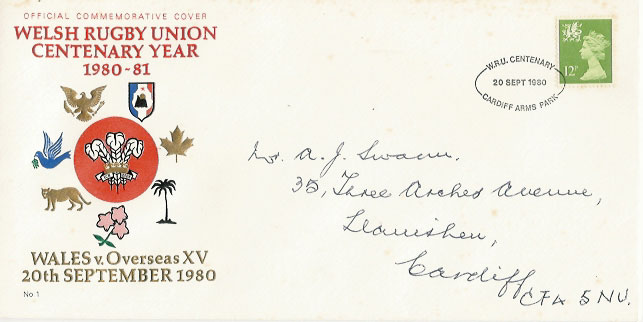 OFFICIAL COMMEMORATIVE COVER
WELSH RUGBY UNION
CENTENARY YEAR
1980-81
WALES v. Overseas XV
20th SEPTEMBER 1980
No 1
W.R.U. CENTENARY
20 SEPT 1980
CARDIFF ARMS PARK
12P
Mr. A. J. Swann.
35, Three Arches Avenue,
Llanishen,
Cardiff
CF4 5NU.